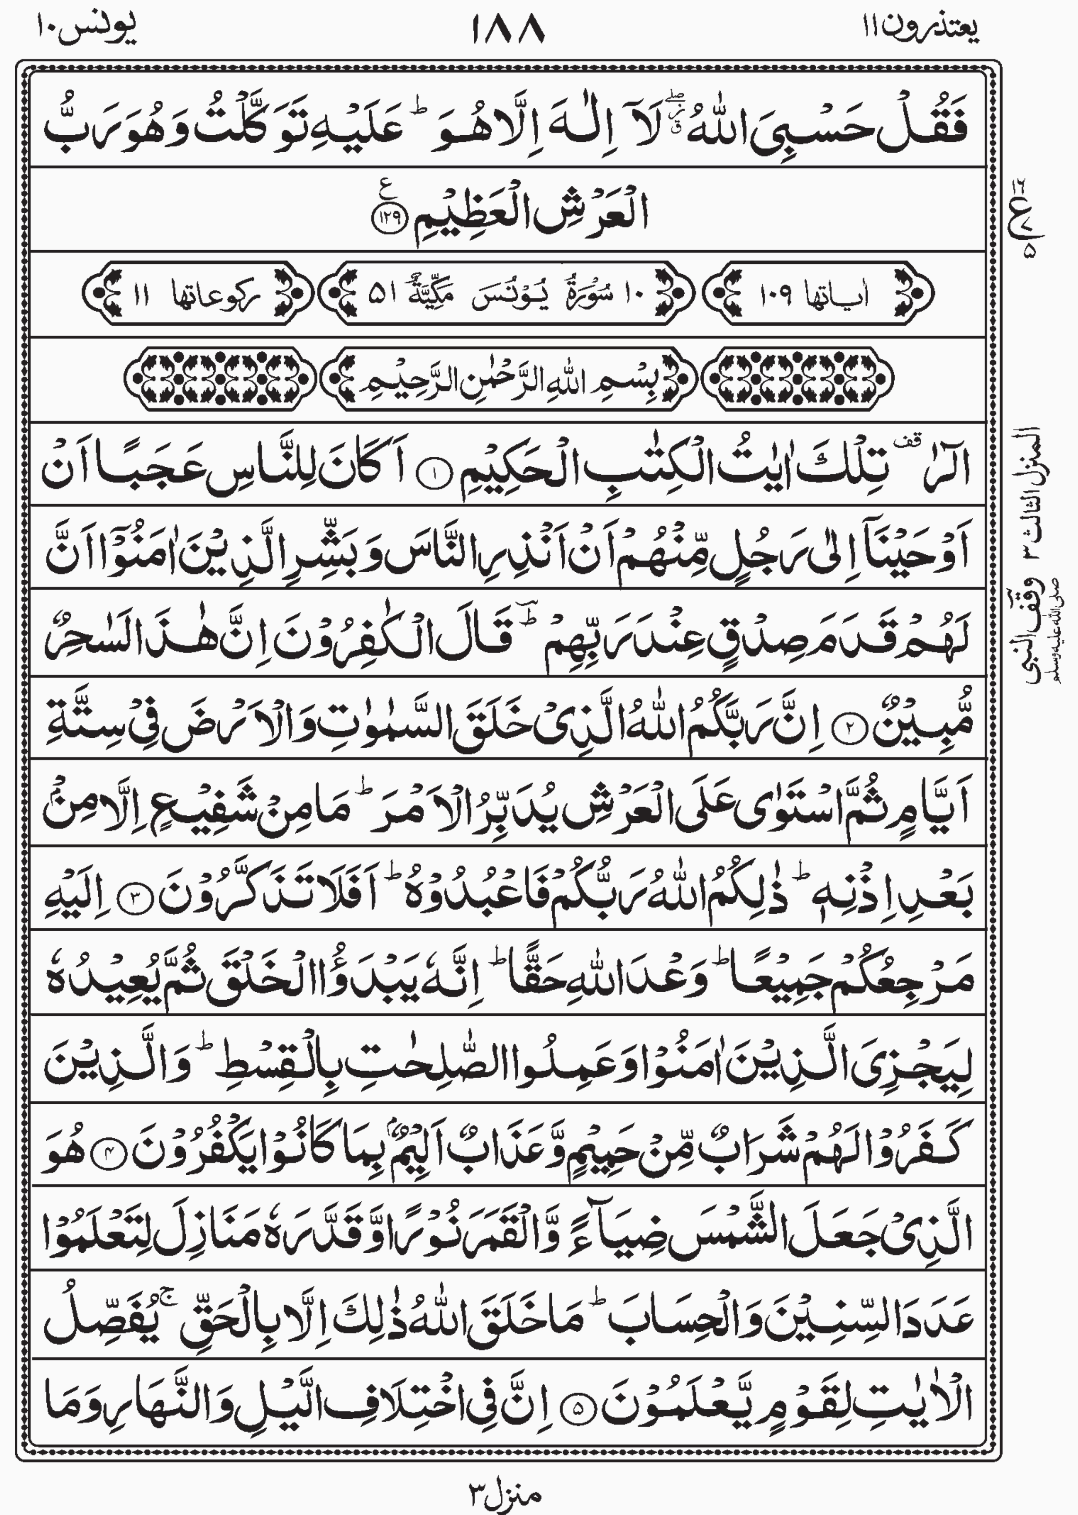 یعتذرون ۱۱
۱۸۸
یونس ۱۰
فَقُلْ حَسْبِيَ اللّٰهُ ۖ لَآ اِلٰهَ اِلَّا هُوَ ؕ عَلَيْهِ تَوَكَّلْتُ وَهُوَ رَبُّ
الْعَرْشِ الْعَظِيْمِ ﴿۱۲۹﴾ ع
اٰیاتها ۱۰۹
۱۰ سُوْرَةُ يُوْنُسَ مَكِّيَّةٌ ۵۱
رکوعاتها ۱۱
بِسْمِ اللّٰهِ الرَّحْمٰنِ الرَّحِيْمِ
الٓرٰ قف تِلْكَ اٰيٰتُ الْكِتٰبِ الْحَكِيْمِ ﴿۱﴾ اَكَانَ لِلنَّاسِ عَجَبًا اَنْ
اَوْحَيْنَآ اِلٰى رَجُلٍ مِّنْهُمْ اَنْ اَنْذِرِ النَّاسَ وَبَشِّرِ الَّذِيْنَ اٰمَنُوْٓا اَنَّ
لَهُمْ قَدَمَ صِدْقٍ عِنْدَ رَبِّهِمْ ؕ قَالَ الْكٰفِرُوْنَ اِنَّ هٰذَا لَسٰحِرٌ
مُّبِيْنٌ ﴿۲﴾ اِنَّ رَبَّكُمُ اللّٰهُ الَّذِىْ خَلَقَ السَّمٰوٰتِ وَالْاَرْضَ فِىْ سِتَّةِ
اَيَّامٍ ثُمَّ اسْتَوٰى عَلَى الْعَرْشِ يُدَبِّرُ الْاَمْرَ ؕ مَا مِنْ شَفِيْعٍ اِلَّا مِنْۢ
بَعْدِ اِذْنِهٖ ؕ ذٰلِكُمُ اللّٰهُ رَبُّكُمْ فَاعْبُدُوْهُ ؕ اَفَلَا تَذَكَّرُوْنَ ﴿۳﴾ اِلَيْهِ
مَرْجِعُكُمْ جَمِيْعًا ؕ وَعْدَ اللّٰهِ حَقًّا ؕ اِنَّهٗ يَبْدَؤُا الْخَلْقَ ثُمَّ يُعِيْدُهٗ
لِيَجْزِىَ الَّذِيْنَ اٰمَنُوْا وَعَمِلُوا الصّٰلِحٰتِ بِالْقِسْطِ ؕ وَالَّذِيْنَ
كَفَرُوْا لَهُمْ شَرَابٌ مِّنْ حَمِيْمٍ وَّعَذَابٌ اَلِيْمٌۢ بِمَا كَانُوْا يَكْفُرُوْنَ ﴿۴﴾ هُوَ
الَّذِىْ جَعَلَ الشَّمْسَ ضِيَآءً وَّالْقَمَرَ نُوْرًا وَّقَدَّرَهٗ مَنَازِلَ لِتَعْلَمُوْا
عَدَدَ السِّنِيْنَ وَالْحِسَابَ ؕ مَا خَلَقَ اللّٰهُ ذٰلِكَ اِلَّا بِالْحَقِّ ۚ يُفَصِّلُ
الْاٰيٰتِ لِقَوْمٍ يَّعْلَمُوْنَ ﴿۵﴾ اِنَّ فِى اخْتِلَافِ الَّيْلِ وَالنَّهَارِ وَمَا
۱۶
ع
۷
۵
المنزل الثالث ۳
وقف النبی صلی الله علیه وسلم
منزل ۳